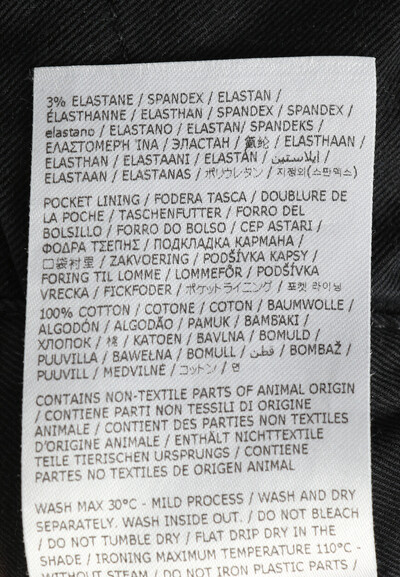 3% ELASTANE / SPANDEX / ELASTAN /
ÉLASTHANNE / ELASTHAN / SPANDEX / SPANDEX /
elastano / ELASTANO / ELASTAN/ SPANDEKS /
ΕΛΑΣΤΟΜΕΡΗ ΊΝΑ / ЭЛАСТАН / 氨纶 / ELASTHAAN /
ELASTHAN / ELASTAANI / ELASTAN / إيلاستين /
ELASTAAN / ELASTANAS / ポリウレタン / 지정외(스판덱스)
POCKET LINING / FODERA TASCA / DOUBLURE DE
LA POCHE / TASCHENFUTTER / FORRO DEL
BOLSILLO / FORRO DO BOLSO / CEP ASTARI /
ΦΟΔΡΑ ΤΣΕΠΗΣ / ПОДКЛАДКА КАРМАНА /
口袋衬里 / ZAKVOERING / PODŠÍVKA KAPSY /
FORING TIL LOMME / LOMMEFÔR / PODŠÍVKA
VRECKA / FICKFODER / ポケットライニング / 포켓 라이닝
100% COTTON / COTONE / COTON / BAUMWOLLE /
ALGODÓN / ALGODÃO / PAMUK / ΒΑΜΒΑΚΙ /
ХЛОПОК / 棉 / KATOEN / BAVLNA / BOMULD /
PUUVILLA / BAWEŁNA / BOMULL / قطن / BOMBAŽ /
PUUVILL / MEDVILNĖ / コットン / 면
CONTAINS NON-TEXTILE PARTS OF ANIMAL ORIGIN
/ CONTIENE PARTI NON TESSILI DI ORIGINE
ANIMALE / CONTIENT DES PARTIES NON TEXTILES
D'ORIGINE ANIMALE / ENTHÄLT NICHTTEXTILE
TEILE TIERISCHEN URSPRUNGS / CONTIENE
PARTES NO TEXTILES DE ORIGEN ANIMAL
WASH MAX 30°C - MILD PROCESS / WASH AND DRY
SEPARATELY. WASH INSIDE OUT. / DO NOT BLEACH
/ DO NOT TUMBLE DRY / FLAT DRIP DRY IN THE
SHADE / IRONING MAXIMUM TEMPERATURE 110°C -
WITHOUT STEAM / DO NOT IRON PLASTIC PARTS /